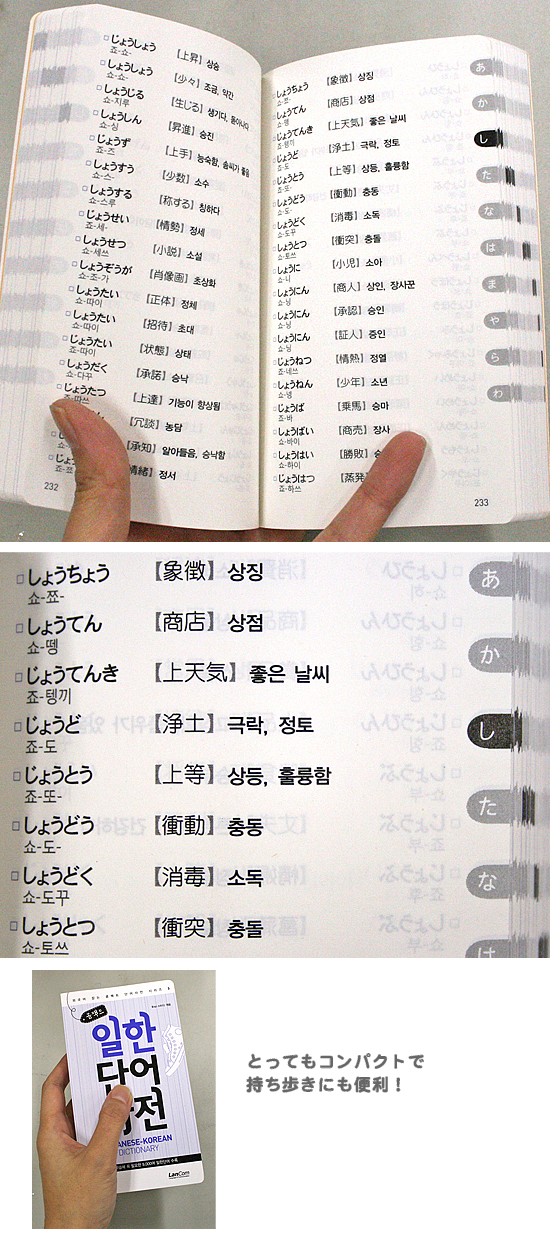 じょうしょう 【上昇】 상승
죠-쇼-
しょうしょう 【少々】 조금, 약간
쇼-쇼-
しょうじる 【生じる】 생기다, 돋아나다
쇼-지루
しょうしん 【昇進】 승진
쇼-싱
じょうず 【上手】 능숙함, 솜씨가 좋음
죠-즈
しょうすう 【少数】 소수
쇼-스-
しょうする 【称する】 칭하다
쇼-스루
じょうせい 【情勢】 정세
죠-세-
しょうせつ 【小説】 소설
쇼-세쯔
しょうぞうが 【肖像画】 초상화
쇼-조-가
しょうたい 【正体】 정체
쇼-따이
しょうたい 【招待】 초대
쇼-따이
じょうたい 【状態】 상태
죠-따이
しょうだく 【承諾】 승낙
쇼-다꾸
じょうたつ 【上達】 기능이 향상됨
죠-따쯔
【冗談】 농담
【承知】 알아들음, 승낙함
情緒】 정서
232
しょうちょう 【象徴】 상징
쇼-쬬-
しょうてん 【商店】 상점
쇼-뗑
じょうてんき 【上天気】 좋은 날씨
죠-텡끼
じょうど 【浄土】 극락, 정토
죠-도
じょうとう 【上等】 상등, 훌륭함
죠-또-
しょうどう 【衝動】 충동
쇼-도-
しょうどく 【消毒】 소독
쇼-도꾸
しょうとつ 【衝突】 충돌
쇼-토쯔
しょうに 【小児】 소아
쇼-니
しょうにん 【商人】 상인, 장사꾼
쇼-닝
しょうにん 【承認】 승인
쇼-닝
しょうにん 【証人】 증인
쇼-닝
じょうねつ 【情熱】 정열
죠-네쯔
しょうねん 【少年】 소년
쇼-넹
じょうば 【乗馬】 승마
죠-바
しょうばい 【商売】 장사
쇼-바이
しょうはい 【勝敗】
쇼-하이
じょうはつ 【蒸発】
죠-하쯔
233
あ
か
し
た
な
は
ま
や
ら
わ
しょうちょう 【象徴】 상징
쇼-쬬-
しょうてん 【商店】 상점
쇼-뗑
じょうてんき 【上天気】 좋은 날씨
죠-텡끼
じょうど 【浄土】 극락, 정토
죠-도
じょうとう 【上等】 상등, 훌륭함
죠-또-
しょうどう 【衝動】 충동
쇼-도-
しょうどく 【消毒】 소독
쇼-도꾸
しょうとつ 【衝突】 충돌
쇼-토쯔
あ
か
し
た
な
は
콤팩트
일한
단어
전
ANESE-KOREAN
DICTIONARY
LanCom
とってもコンパクトで
持ち歩きにも便利！